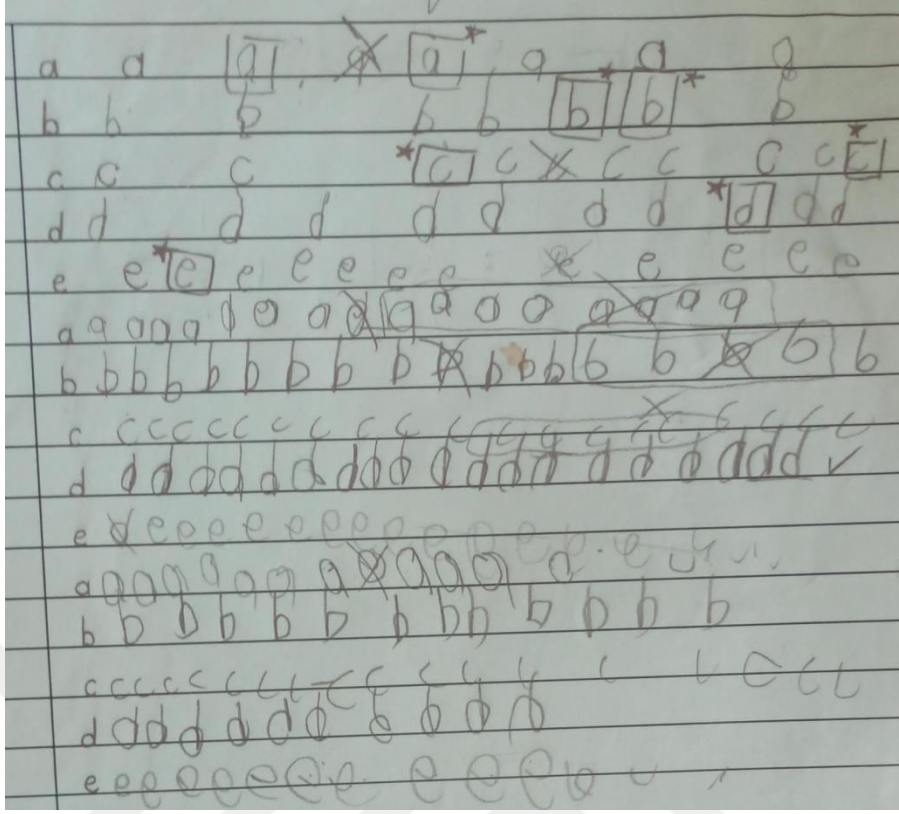 a a a a a a a a
b b b b b b b b
c c c c c x c c c c c
d d d d d d d d d d d
e e e e e e e e e e e e e
a a a a a a a a a a a a a a a a a a
b b b b b b b b b b b b b b b b b b
c c c c c c c c c c c c c c c c c c c c c c
d d d d d d d d d d d d d d d d d d d d d d
e e e e e e e e e e e e e e e
a a a a a a a a a a a a a
b b b b b b b b b b b b b
c c c c c c c c c c c c c c c c c c c
d d d d d d d d d d d d
e e e e e e e e e e e e e